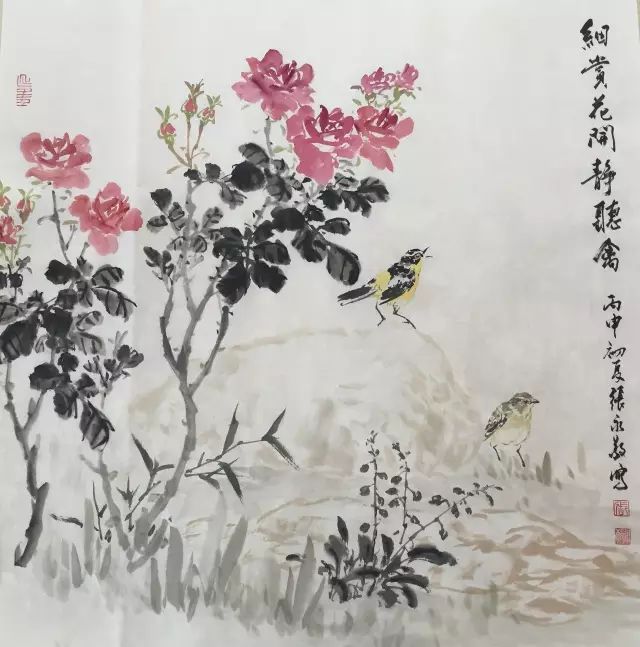 細賞花開靜聽禽
丙申初夏張永敬寫